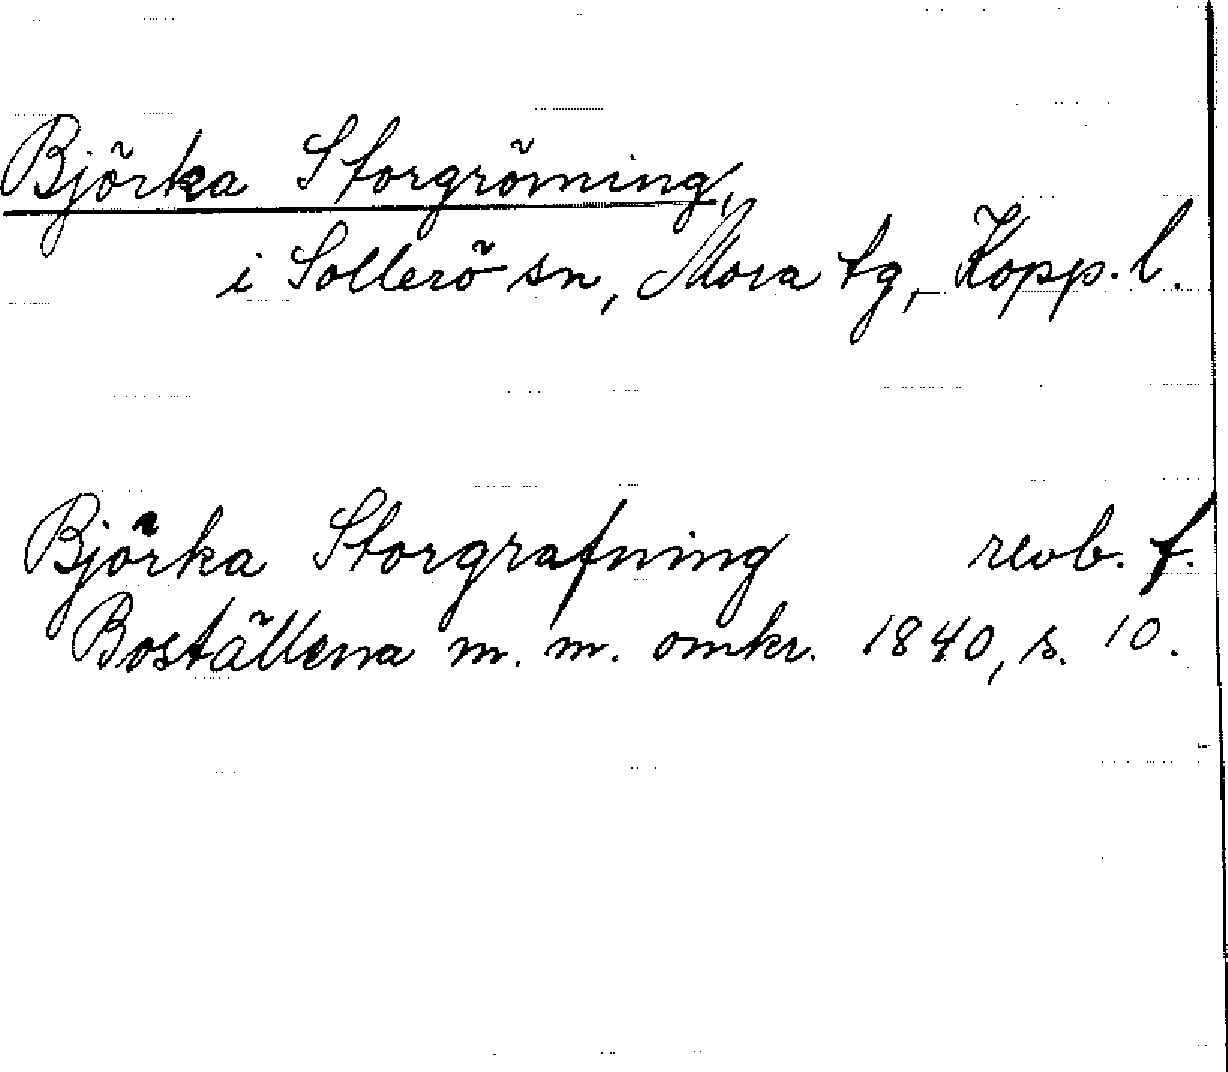 Björka Storgröming,
i Sollerö sn, Mora tg, Kopp. l.
Björka Storgrafning revb. f.
Boställena m. m. omkr. 1840, s. 10.